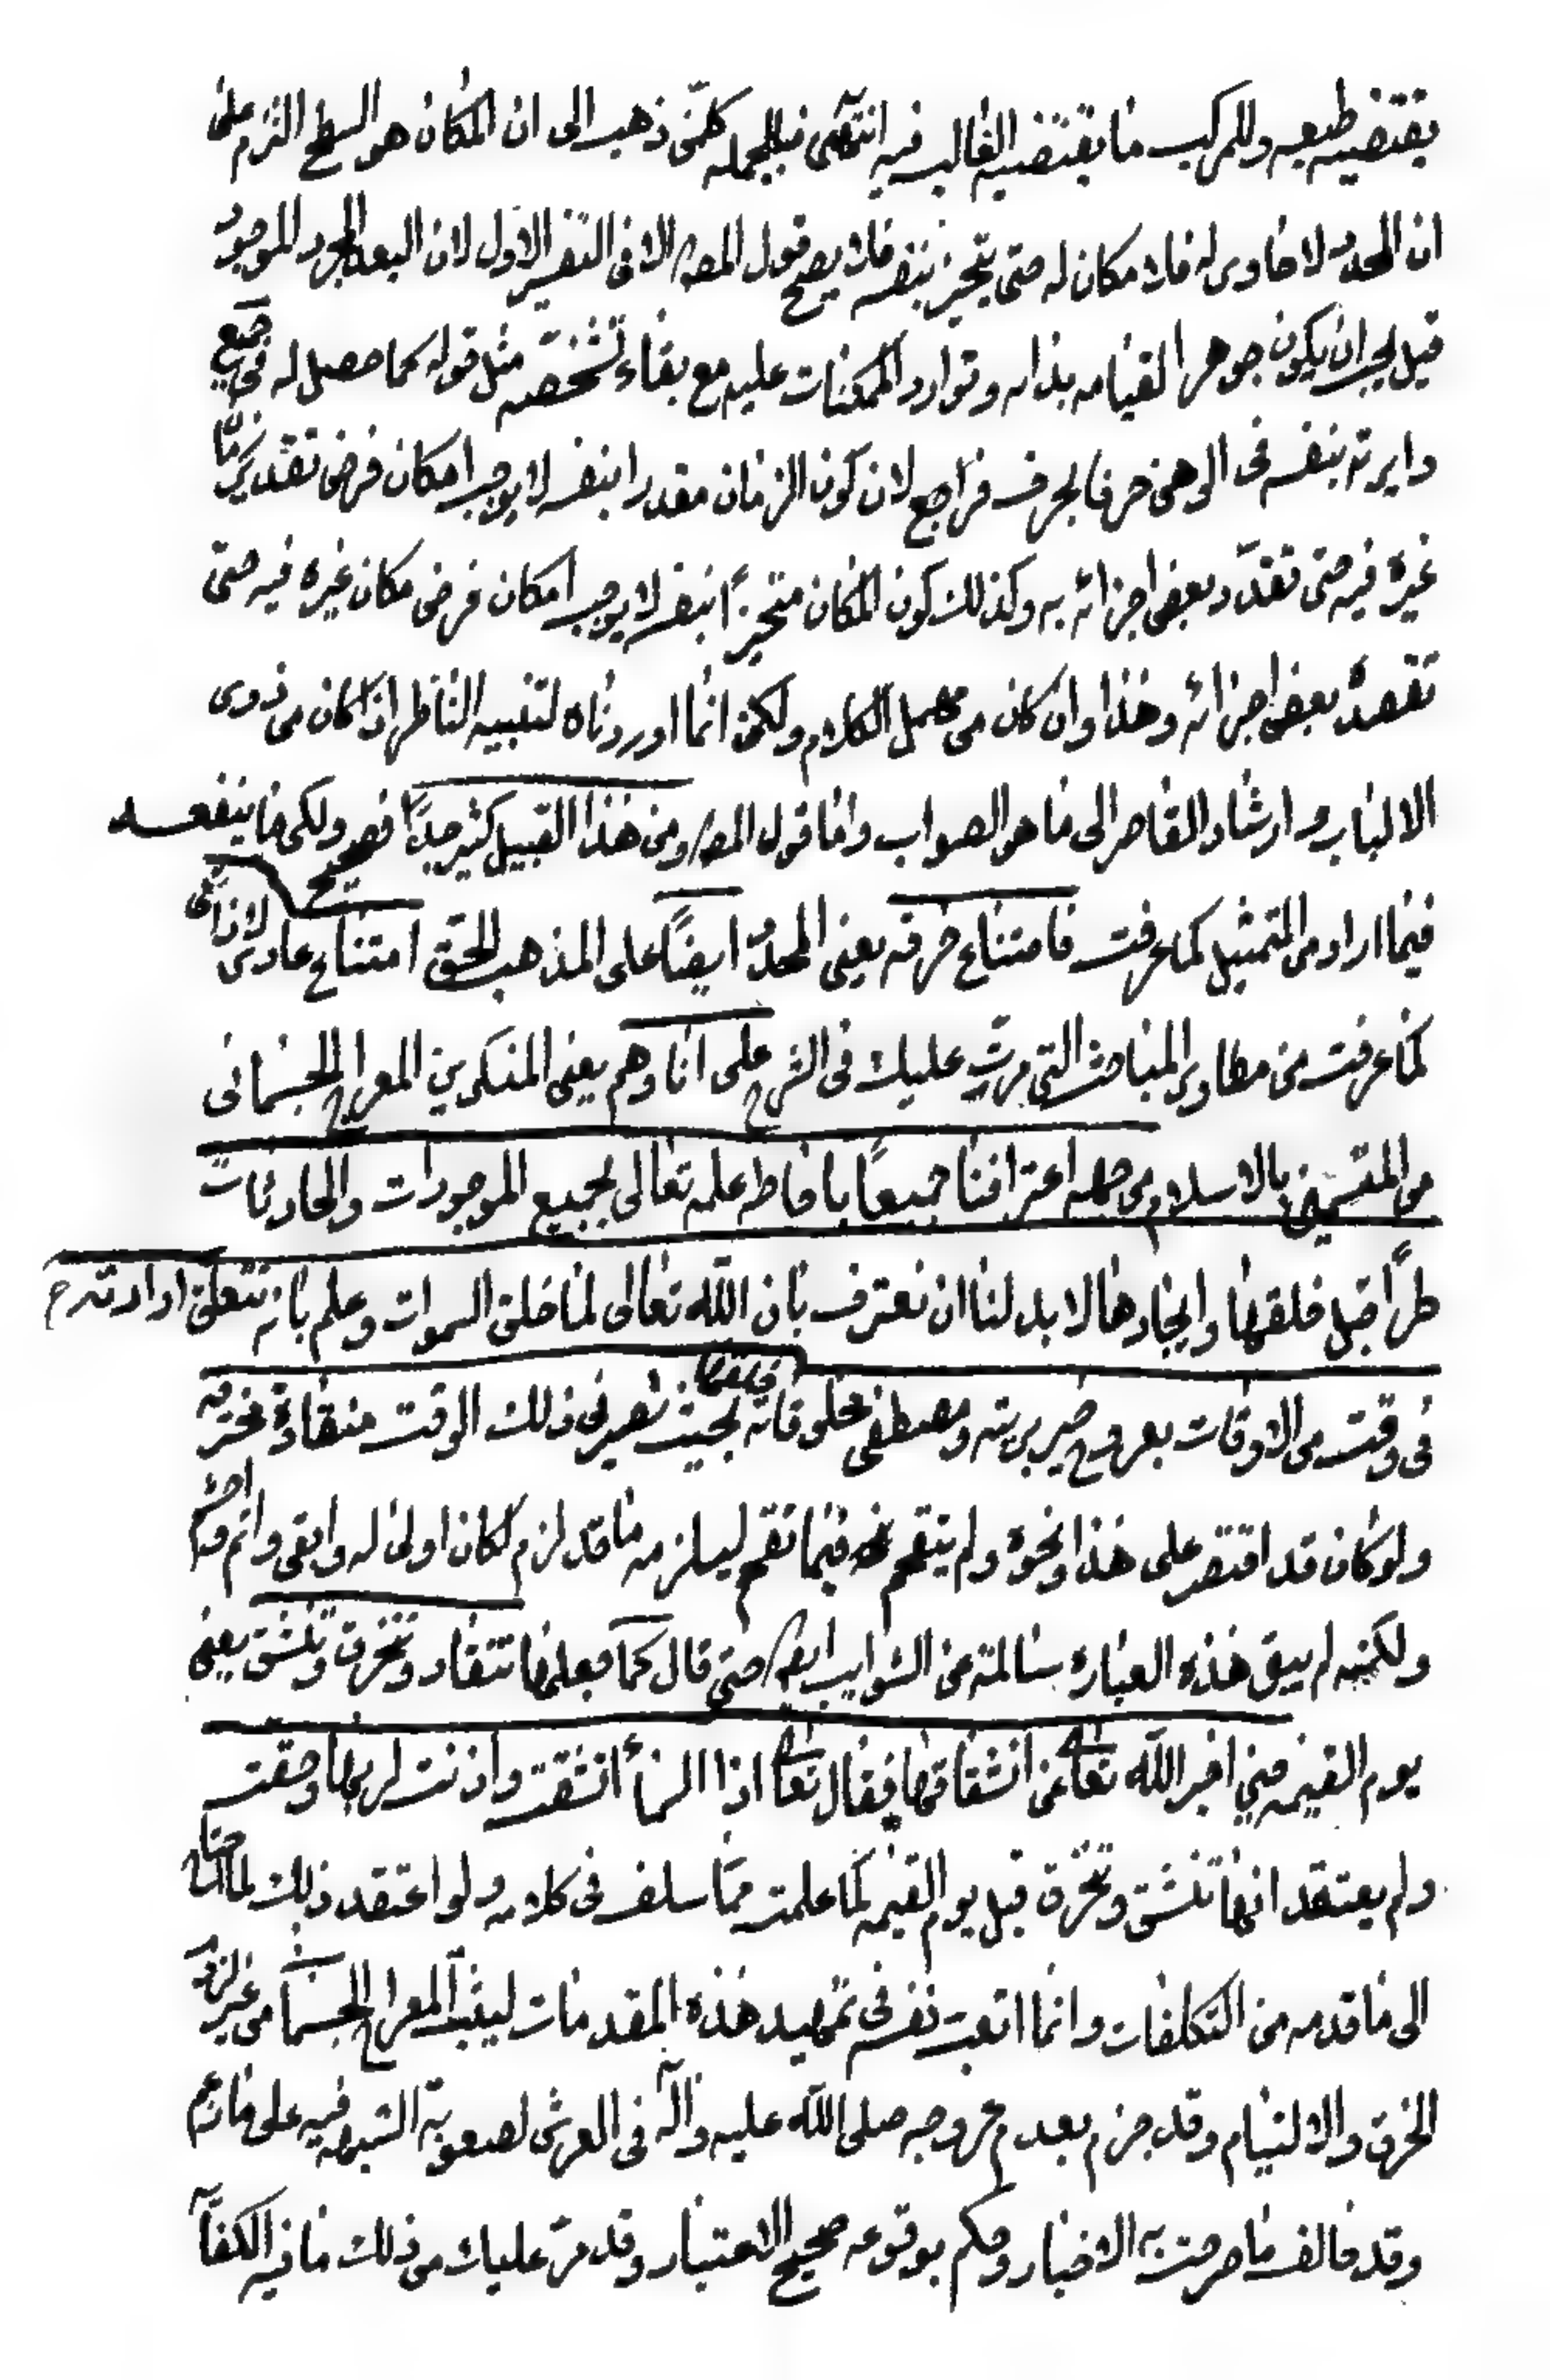 يقتضيه طبعه وللمركب ما يقتضيه الغالب فيه انتهى فبالجمله كلمن ذهب الى ان المكان هو السطح التزم على
ان المحدد لا حاوى له فلا مكان له حتى يتحيز بنفسه فلا يصح قول المصر الا فى التفسير الاول لان البعد المجرد الموجود
قيل يجب ان يكون جوهرا لقيامه بذاته وتوارد الممكنات عليه مع بقاء تشخصه مثل قوله كما حصل له فى
دايرته بنفسه فى الوهى حرفا بحرف فراجع لان كون الزمان مقدرا بنفسه لا يوجب امكان فرض تقدير
غيره فيه حتى تقدّر بعض اجزائه به وكذلك كون المكان متحيزاً بنفسه لا يوجب امكان فرض مكان غيره فيه حتى
تقصد بعض اجزائه وهذا وان كان من الكلام ولكن انما اوردناه لتنبيه الناظر اذا كان من ذوى
الالباب وارشاد القاصر الى ما هو الصواب واما قول المصر ومن هذا القبيل كثير جدًّا فصحيح ولكن ما ينفعه
فيما اراد من التمثيل كما عرفت فامتناع خرقه يعنى المحدد ايضًا على المذهب الحق امتناع عادى لا ذاتى
كما عرفت من مطاوى المباحث التى مرت عليك فى الشرح على انا وهم يعنى المنكرين المعراج الجسمانى
من المتسمين بالاسلام من جملة اعترافنا جميعاً باحاطه علمه تعالى بجميع الموجودات والحادثات
طرًّا قبل خلقها وايجادها لا بد لنا ان نعترف بان الله تعالى لما خلق السموات وعلم بانه تتعلق ارادته ح
فى وقت من الاوقات بعروج خير بريته ومصطفى مخلوقاته خلقها بحيث تصير فى ذلك الوقت منقادة منخرقه
ولو كان قد اقتصر على هذا ونحوه ولم يتقحم فيما تقحم ليلزمه ما قد لزم لكان اولى له وابقى واتم
ولكنه لم يبق هذه العباره سالمة من الشوايب ايضا حتى قال كما جعلها تنقاد وتنخرق وتنشق يعنى
يوم القيمه حين اخبر الله تعالى عن انشقاقها فقال تعالى اذا السماء انشقت واذنت لربها وحقت
ولم يعتقد انها تنشق وتنخرق قبل يوم القيمه كما علمت مما سلف فى كلامه ولو اعتقد ذلك لما احتاج
الى ما قدمه من التكلفات وانما اتعب نفسه فى تمهيد هذه المقدمات ليثبت المعراج الجسمانى من غير لزوم
الخرق والالتيام وقد جزم بعدم عروجه صلى الله عليه وآله فى العرش لصعوبة الشبهه فيه على ما زعم
وقد خالف ما صرحت به الاخبار وحكم بوقوعه صحيح الاعتبار وقد مرّ عليك من ذلك ما فيه الكفاية